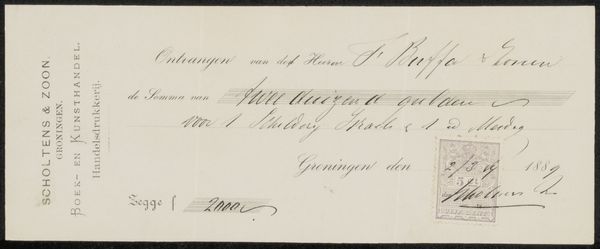 SCHOLTENS & ZOON.
GRONINGEN.
BOEK- EN KUNSTHANDEL.
Handelsdrukkerij.
Ontvangen van den Heeren F Buffa & Zonen
de Somma van twee duizend gulden
voor 1 Schildery Israels & 1 id Mesdag
Groningen den 2/3 89 1889
5
Scholtens Z
Zegge f 2000